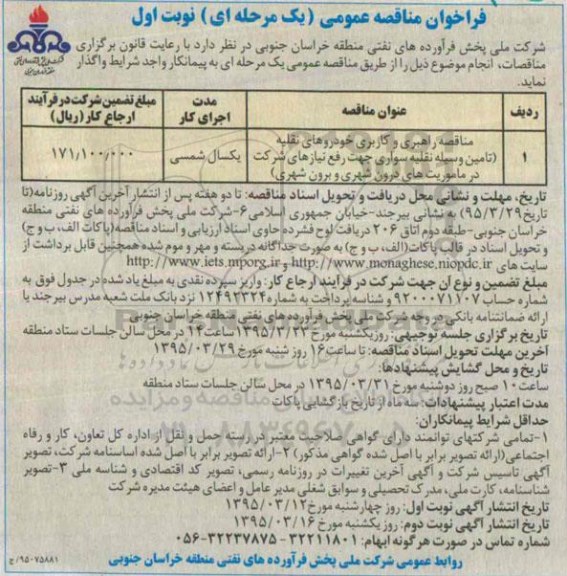 فراخوان مناقصه عمومی (یک مرحله ای) نوبت اول
شرکت ملی پخش فرآورده های نفتی منطقه خراسان جنوبی در نظر دارد با رعایت قانون برگزاری
مناقصات، انجام موضوع ذیل را از طریق مناقصه عمومی یک مرحله ای به پیمانکار واجد شرایط واگذار
نماید.
ردیف
عنوان مناقصه
مدت اجرای کار
مبلغ تضمین شرکت در فرآیند ارجاع کار (ریال)
۱
مناقصه راهبری و کاربری خودروهای نقلیه
(تامین وسیله نقلیه سواری جهت رفع نیازهای شرکت
در ماموریت های درون شهری و برون شهری)
یکسال شمسی
۱۷۱/۱۰۰/۰۰۰
تاریخ، مهلت و نشانی محل دریافت و تحویل اسناد مناقصه: تا دو هفته پس از انتشار آخرین آگهی روزنامه (تا
تاریخ ۹۵/۳/۲۹) به نشانی بیرجند-خیابان جمهوری اسلامی ۶-شرکت ملی پخش فرآورده های نفتی منطقه
خراسان جنوبی-طبقه دوم اتاق ۲۰۶ دریافت لوح فشرده حاوی اسناد ارزیابی و اسناد مناقصه (پاکات الف، ب و ج)
و تحویل اسناد در قالب پاکات (الف، ب و ج) به صورت جداگانه دربسته و مهر و موم شده همچنین قابل برداشت از
سایت های http://www.monaghese.niopdc.ir و http://www.iets.mporg.ir
مبلغ تضمین و نوع آن جهت شرکت در فرآیند ارجاع کار: واریز سپرده نقدی به مبلغ یاد شده در جدول فوق به
شماره حساب ۹۲۰۰۰۷۱۱۰۷ و شناسه پرداخت به شماره ۱۲۴۹۲۳۲۴ نزد بانک ملت شعبه مدرس بیرجند یا
ارائه ضمانتنامه بانکی در وجه شرکت ملی پخش فرآورده های نفتی منطقه خراسان جنوبی
تاریخ برگزاری جلسه توجیهی: روز یکشنبه مورخ ۱۳۹۵/۳/۲۳ ساعت ۱۲ در محل سالن جلسات ستاد منطقه
آخرین مهلت تحویل اسناد مناقصه: تا ساعت ۱۶ روز شنبه مورخ ۱۳۹۵/۰۳/۲۹
تاریخ و محل گشایش پیشنهادها:
ساعت ۱۰ صبح روز دوشنبه مورخ ۱۳۹۵/۰۳/۳۱ در محل سالن جلسات ستاد منطقه
مدت اعتبار پیشنهادات: سه ماه از تاریخ بازگشایی پاکات
حداقل شرایط پیمانکاران:
۱-تمامی شرکتهای توانمند دارای گواهی صلاحیت معتبر در رسته حمل و نقل از اداره کل تعاون، کار و رفاه
اجتماعی (ارائه تصویر برابر با اصل شده گواهی مذکور) ۲-ارائه تصویر برابر با اصل شده اساسنامه شرکت، تصویر
آگهی تاسیس شرکت و آگهی آخرین تغییرات در روزنامه رسمی، تصویر کد اقتصادی و شناسه ملی ۳-تصویر
شناسنامه، کارت ملی، مدرک تحصیلی و سوابق شغلی مدیر عامل و اعضای هیئت مدیره شرکت
تاریخ انتشار آگهی نوبت اول: روز چهارشنبه مورخ ۱۳۹۵/۰۳/۱۲
تاریخ انتشار آگهی نوبت دوم: روز یکشنبه مورخ ۱۳۹۵/۰۳/۱۶
شماره تماس در صورت هرگونه ابهام: ۳۲۲۱۱۸۰۱-۰۵۶-۳۲۲۳۷۸۷۵
روابط عمومی شرکت ملی پخش فرآورده های نفتی منطقه خراسان جنوبی
۹۵۰۷۵۸۸۱/ج